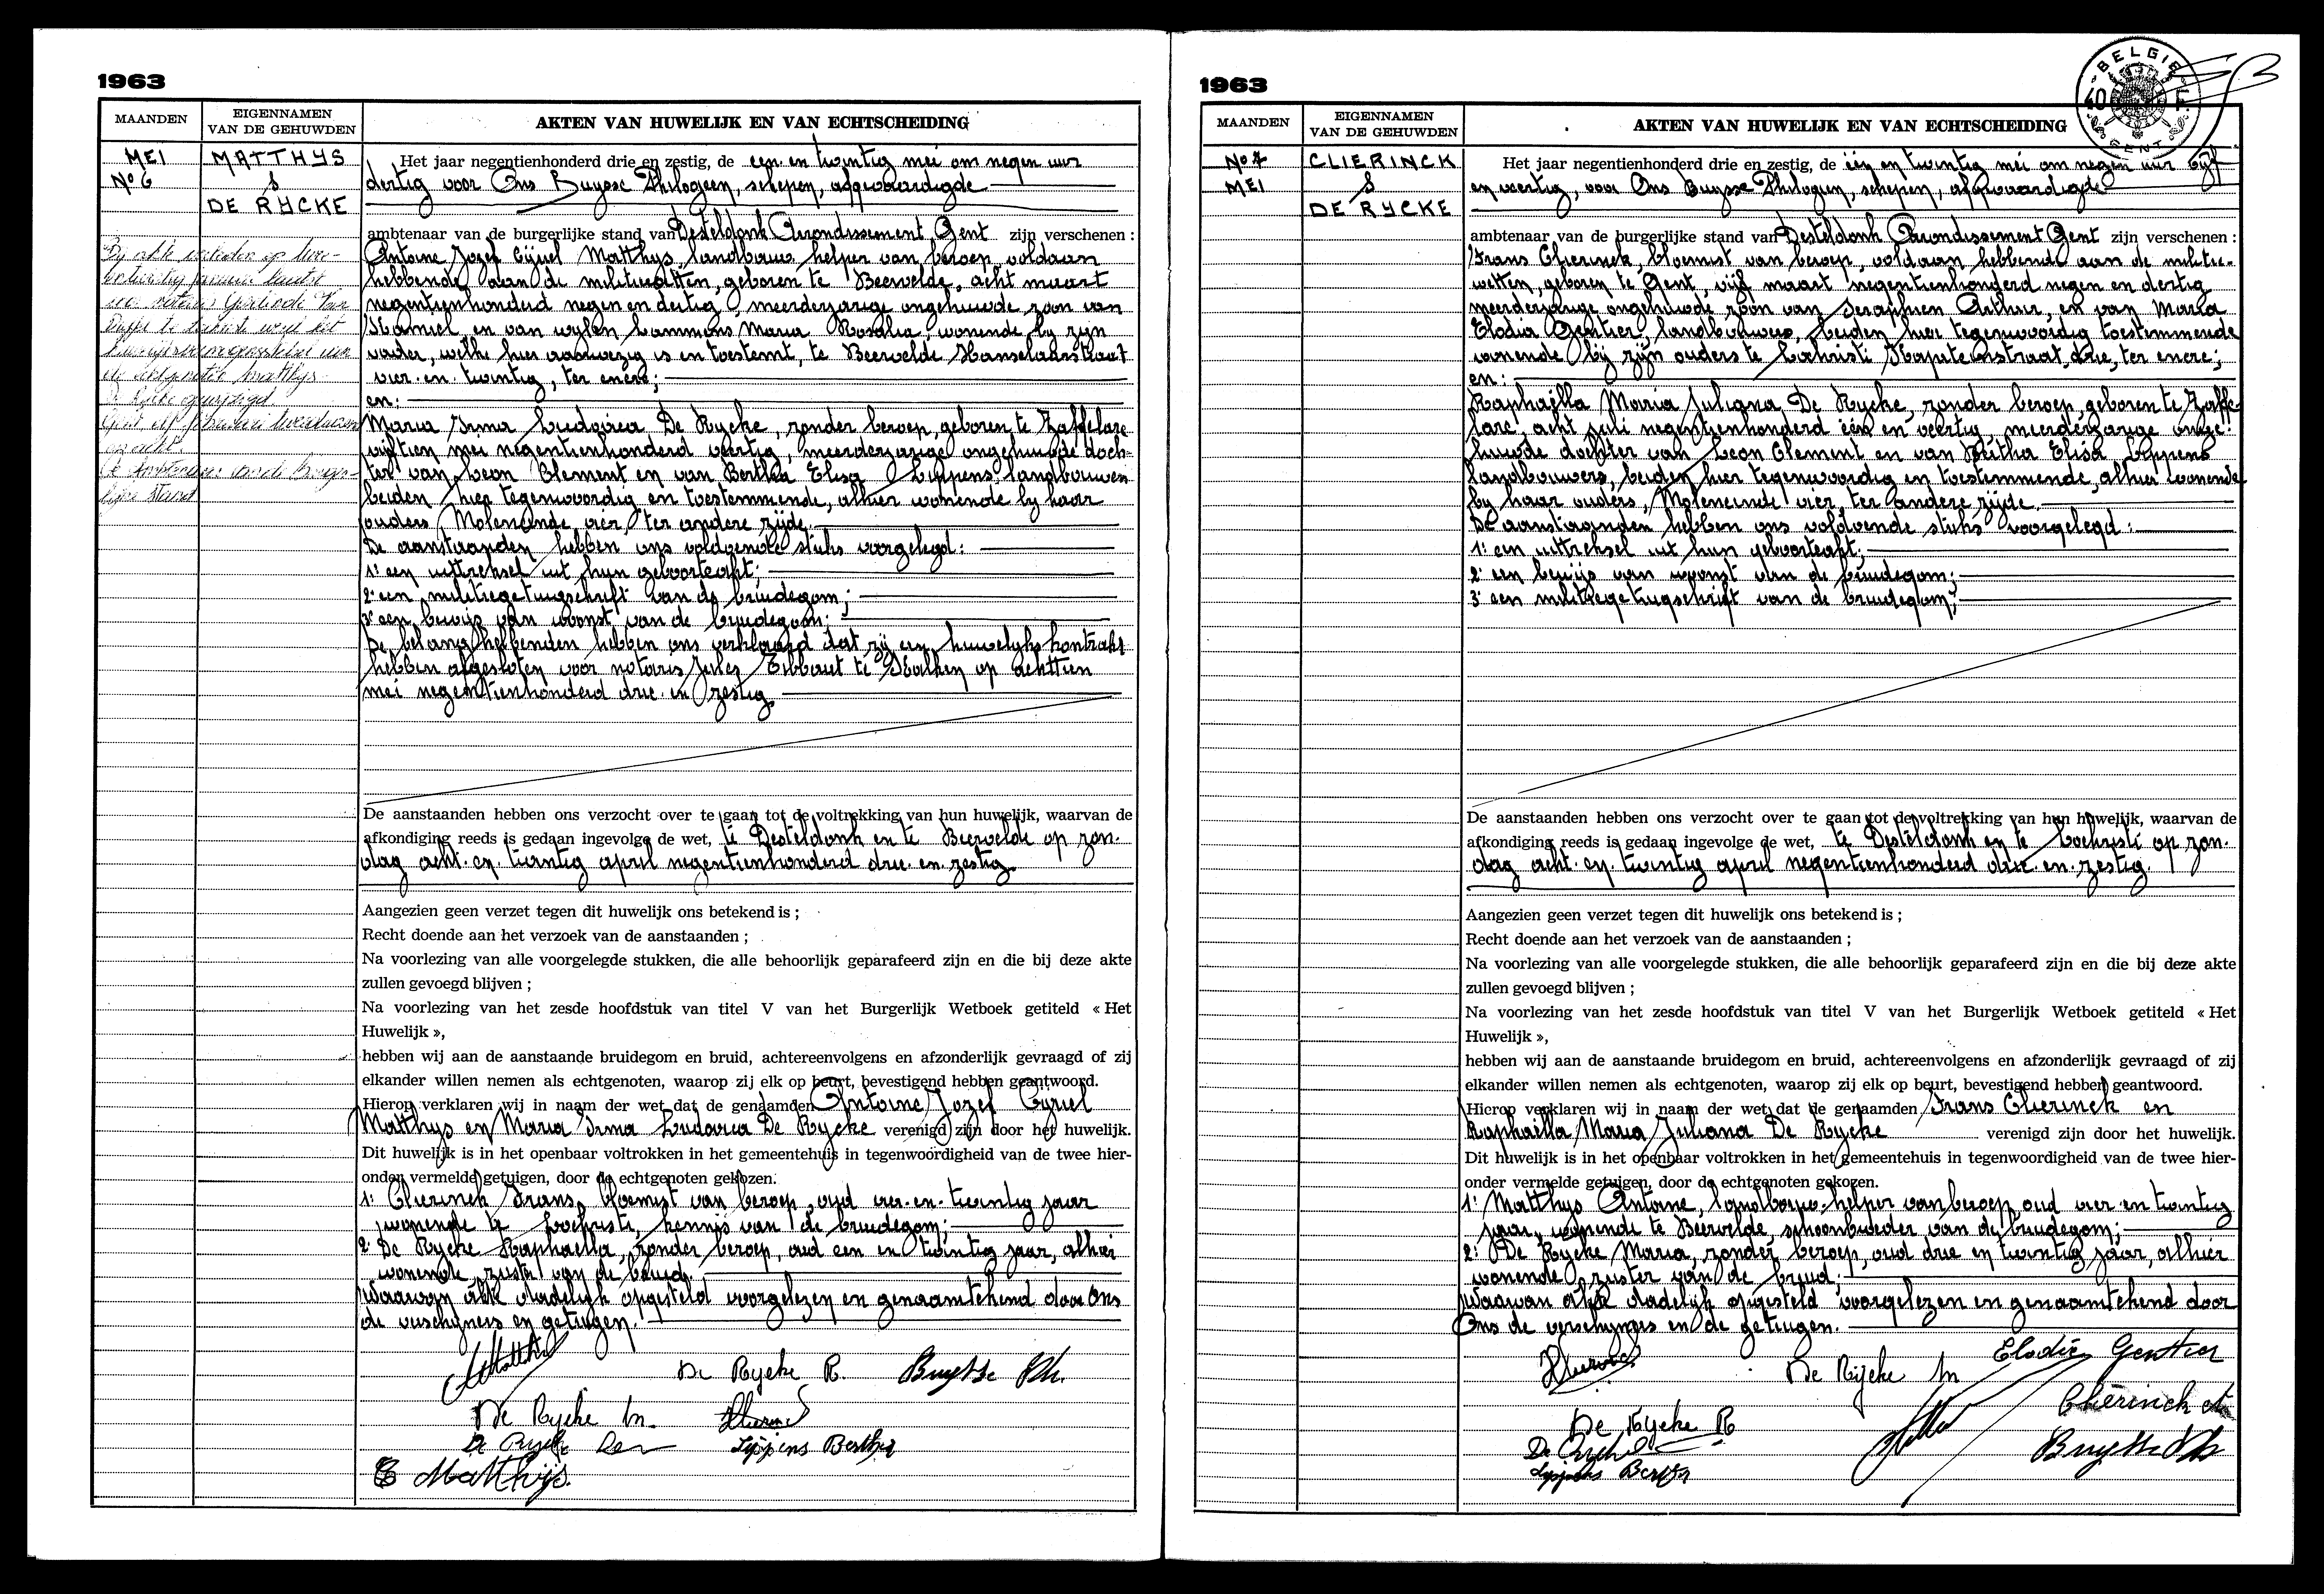 1963
MAANDEN
EIGENNAMEN
VAN DE GEHUWDEN
AKTEN VAN HUWELIJK EN VAN ECHTSCHEIDING
MEI
No 6
MATTHYS
&
DE RYCKE
Het jaar negentienhonderd drie en zestig, de een en twintig mei om negen uur
dertig voor Ons Buysse Philogeen, schepen, afgevaardigde
ambtenaar van de burgerlijke stand van Desteldonk Arrondissement Gent zijn verschenen :
Antoine Jozef Cyriel Matthys, landbouw helper van beroep, voldaan
hebbende aan de militiewetten, geboren te Beervelde, acht maart
negentienhonderd negen en dertig, meerderjarige ongehuwde zoon van
Kamiel en van wylen Lammens Maria Rosalia, wonende by zyn
vader, welke hier aanwezig is en toestemt, te Beervelde Hanselaarstraat
vier en twintig, ter enere;
en:
Maria Irma Ludovica De Rycke, zonder beroep, geboren te Zaffelare
vijftien mei negentienhonderd veertig, meerderjarige ongehuwde doch-
ter van Leon Clement en van Bertha Elisa Lippens, landbouwers
beiden hier tegenwoordig en toestemmende, alhier wonende by haar
ouders, Moleneinde vier, ter andere zijde.
De aanstaanden hebben ons voldoende stuks voorgelegd:
1° een uittreksel uit hun geboorteakt;
2° een militiegetuigschrift van de bruidegom;
3° een bewijs van woonst van de bruidegom;
De belanghebbenden hebben ons verklaard dat zij een huwelijks kontrakt
hebben afgesloten voor notaris Jules Tibbaut te Kalken op achttien
mei negentienhonderd drie en zestig
De aanstaanden hebben ons verzocht over te gaan tot de voltrekking van hun huwelijk, waarvan de
afkondiging reeds is gedaan ingevolge de wet, te Desteldonk en te Beervelde op zon-
dag acht en twintig april negentienhonderd drie en zestig
Aangezien geen verzet tegen dit huwelijk ons betekend is ;
Recht doende aan het verzoek van de aanstaanden ;
Na voorlezing van alle voorgelegde stukken, die alle behoorlijk geparafeerd zijn en die bij deze akte
zullen gevoegd blijven ;
Na voorlezing van het zesde hoofdstuk van titel V van het Burgerlijk Wetboek getiteld « Het
Huwelijk »,
hebben wij aan de aanstaande bruidegom en bruid, achtereenvolgens en afzonderlijk gevraagd of zij
elkander willen nemen als echtgenoten, waarop zij elk op beurt, bevestigend hebben geantwoord.
Hierop verklaren wij in naam der wet dat de genaamden Antoine Jozef Cyriel
Matthys en Maria Irma Ludovica De Rycke verenigd zijn door het huwelijk.
Dit huwelijk is in het openbaar voltrokken in het gemeentehuis in tegenwoordigheid van de twee hier-
onder vermelde getuigen, door de echtgenoten gekozen.
1° Clierinck Frans, bloemist van beroep, oud vier en twintig jaar
wonende te Lochristi, kennis van de bruidegom;
2° De Rycke Raphaella, zonder beroep, oud een en twintig jaar, alhier
wonende, zuster van de bruid.
Waarvan akte dadelijk opgesteld voorgelezen en genaamtekend door Ons
de verschijners en getuigen.
De Rycke R. Buysse Ph.
De Rycke M.
Lippens Bertha
Matthijs.
1963
BELGIE
40 F
GENT
MAANDEN
EIGENNAMEN
VAN DE GEHUWDEN
AKTEN VAN HUWELIJK EN VAN ECHTSCHEIDING
No 7
MEI
CLIERINCK
&
DE RYCKE
Het jaar negentienhonderd drie en zestig, de één en twintig mei om negen uur vijf
en veertig, voor Ons Buysse Philogeen, schepen, afgevaardigde
ambtenaar van de burgerlijke stand van Desteldonk Arrondissement Gent zijn verschenen :
Frans Clierinck, bloemist van beroep, voldaan hebbende aan de militie-
wetten, geboren te Gent, vijf maart negentienhonderd negen en dertig
meerderjarige ongehuwde zoon van Seraphien Arthur, en van Maria
Elodia Gentier, landbouwers, beiden hier tegenwoordig toestemmende
wonende bij zijn ouders te Lochristi Kapitenstraat, drie, ter enere;
en:
Raphaëlla Maria Juliana De Rycke, zonder beroep, geboren te Zaffe-
lare acht juli negentienhonderd één en veertig, meerderjarige onge-
huwde dochter van Leon Clement en van Bertha Elisa Lippens
landbouwers, beiden hier tegenwoordig en toestemmende, alhier wonende
by haar ouders, Moleneinde vier, ter andere zijde.
De aanstaanden hebben ons voldoende stuks voorgelegd:
1° een uittreksel uit hun geboorteakt;
2° een bewijs van woonst van de bruidegom;
3° een militiegetuigschrift van de bruidegom;
De aanstaanden hebben ons verzocht over te gaan tot de voltrekking van hun huwelijk, waarvan de
afkondiging reeds is gedaan ingevolge de wet, te Desteldonk en te Lochristi op zon-
dag acht en twintig april negentienhonderd drie en zestig.
Aangezien geen verzet tegen dit huwelijk ons betekend is ;
Recht doende aan het verzoek van de aanstaanden ;
Na voorlezing van alle voorgelegde stukken, die alle behoorlijk geparafeerd zijn en die bij deze akte
zullen gevoegd blijven ;
Na voorlezing van het zesde hoofdstuk van titel V van het Burgerlijk Wetboek getiteld « Het
Huwelijk »,
hebben wij aan de aanstaande bruidegom en bruid, achtereenvolgens en afzonderlijk gevraagd of zij
elkander willen nemen als echtgenoten, waarop zij elk op beurt, bevestigend hebben geantwoord.
Hierop verklaren wij in naam der wet dat de genaamden Frans Clierinck en
Raphaëlla Maria Juliana De Rycke verenigd zijn door het huwelijk.
Dit huwelijk is in het openbaar voltrokken in het gemeentehuis in tegenwoordigheid van de twee hier-
onder vermelde getuigen, door de echtgenoten gekozen.
1° Matthys Antoine, landbouw-helper van beroep, oud vier en twintig
jaar, wonende te Beervelde, schoonbroeder van de bruidegom;
2° De Rycke Maria, zonder beroep, oud drie en twintig jaar, alhier
wonende, zuster van de bruid;
Waarvan akte dadelijk opgesteld voorgelezen en genaamtekend door
Ons de verschijners en de getuigen.
Elodie Gentier
De Rijcke M
Clierinck A
De Rycke R
Buysse Ph
Lippens Bertha